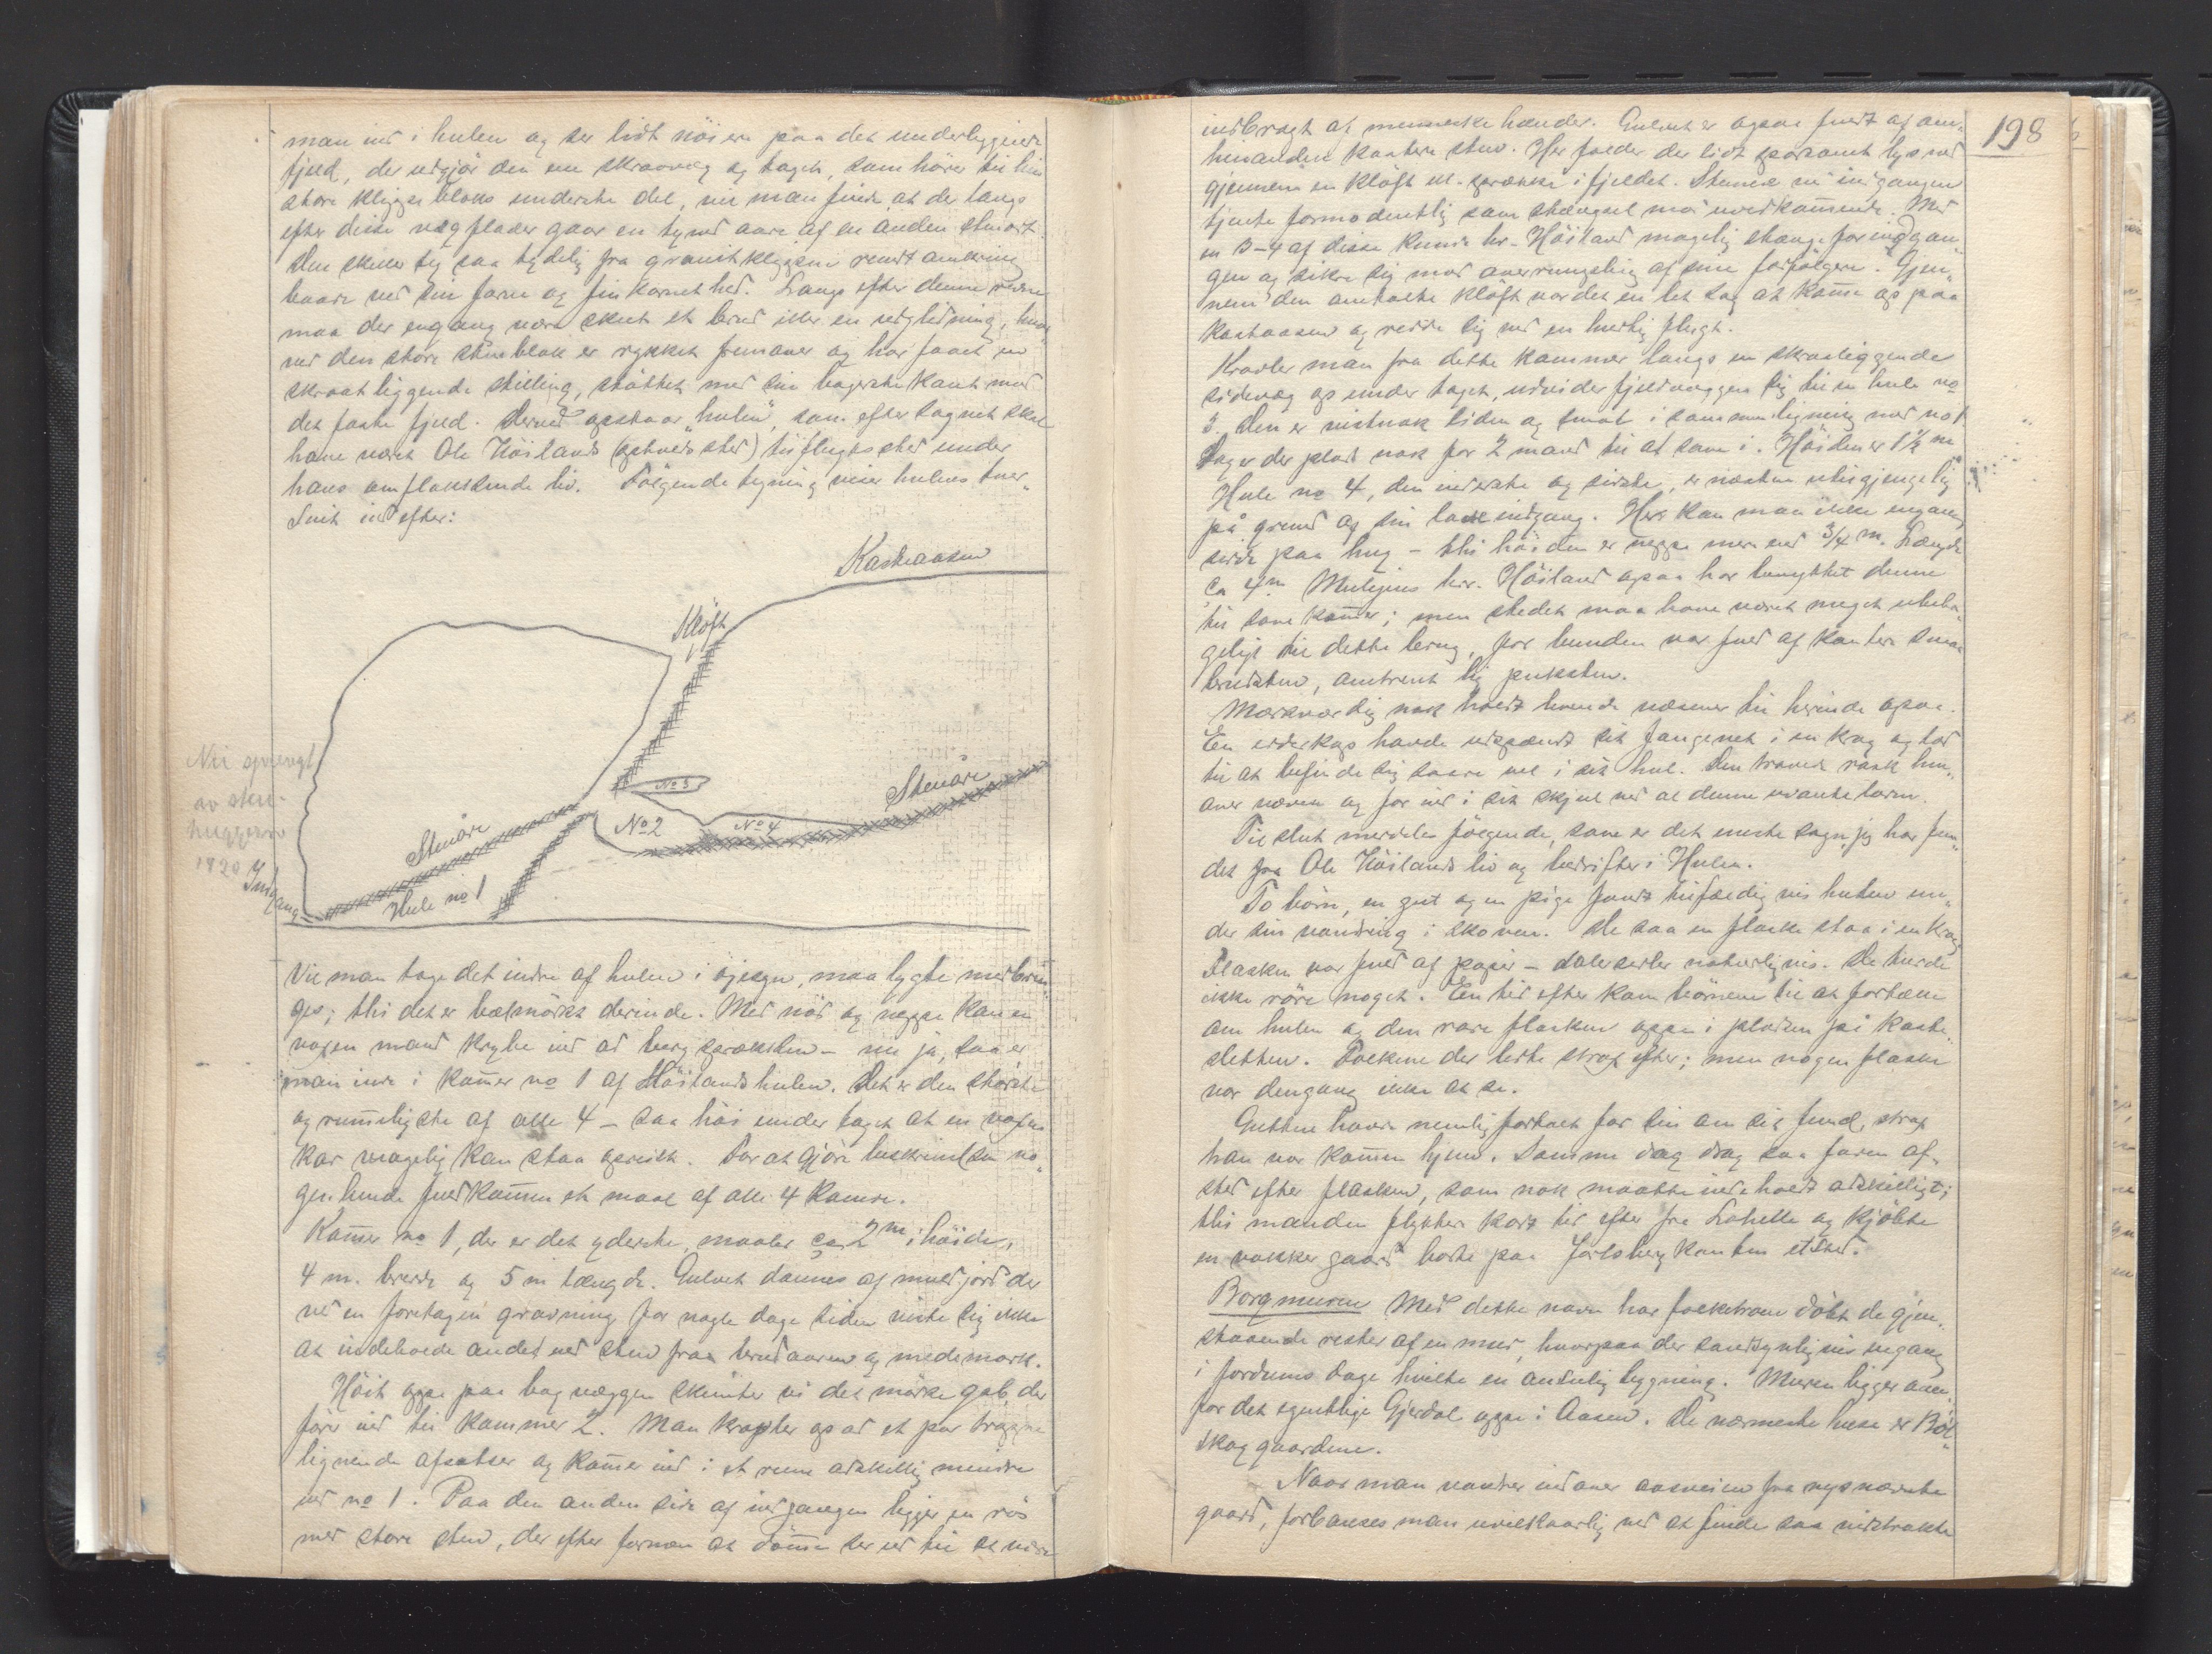 man ind i hulen og ser lidt nöiere paa det underliggende
fjeld, der udgjör den ene skraavæg og taget, som hörer til hin
store klippebloks underste del, vil man finde, at der langs
efter disse vægflader gaar en tynd aare af en anden stenart.
Den skiller sig saa tydelig fra granitklippen rundt omkring
baade ved sin farve og finkornethed. Langs efter denne
maa der engang være skeet et brud eller en udglidning, hvor-
ved den store stenblok er rykket fremover og har faaet en
skraatliggende stilling, støttet med sin bagerste kant mod
det faste fjeld. Derved opstaar "hulen", som efter sagnet skal
have været Ole Höilands (opholdssted) tilflugtssted under
hans omflakkende liv. Fölgende tegning viser hulens tver-
snit indefter:
Kasteaasen
Klöft
No 3
Stenåre
No 2
No 4
Stenåre
Hule no 1
Indgang
Nu sprengt
av sten-
huggere
1920
Vil man tage det indre af hulen i öiesyn, maa lygte medbrin-
ges; thi det er bælmörkt derinde. Med nöd og neppe kan en
voxen mand krybe ind ad bergsprækken - nu ja, saa er
man inde i kamer no 1 af Höilandshulen. Det er den störste
og rumeligste af alle 4 - saa höi under taget at en voxen
kar magelig kan staa opreist. For at gjöre beskrivelsen no-
genlunde fuldkommen et maal af alle 4 kamre.
Kamer no 1, der er det yderste, maaler ca 2 m i höide,
4 m. bredde og 5 m længde. Gulvet dannes af muldjord der
ved en foretagen gravning for nogle dage siden viste sig ikke
at indeholde andet end sten fra brudaaren og medemark.
Höit oppe paa bagvæggen skimter vi det mörke gab, der
förer ind til kammer 2. Man kravler op ad et par trappe
lignende afsatser og kommer ind i et rum adskillig mindre
end no 1. Paa den anden side af indgangen ligger en rös
med store sten, der efter formen at dömme ser ud til at være
198
indbragt af menneskehænder. Gulvet er ogsaa fuldt af om-
hinanden kastede sten. Her falder der lidt sparsomt lys ned
gjennem en klöft el. sprække i fjeldet. Stenene ved indgangen
tjente formodentlig som stængsel mod uvedkommende. Med
en 3-4 af disse kunde hr. Höiland magelig stænge for indgan-
gen og sikre sig mod overrumpling af sine forfölgere. Gjen-
nem den omtalte klöft var det en let sag at komme op paa
Kasteaasen og redde sig ved en hurtig flugt.
Kravler man fra dette kammer langs en skraaliggende
sidevæg op under taget, udvider fjeldvæggen sig til en hule no
3. Den er vistnok liden og smal i sammenligning med no 1
Dog er der plads nok for 2 mand til at sove i. Höiden er 1½ m
Hule no 4, den inderste og sidste, er næsten utilgjengelig
på grund af sin lave indgang. Her kan man ikke engang
sidde paa hug - thi höiden er neppe mere end 3/4 m. Længde
ca 4 m. Muligens hr. Höiland ogsaa har benyttet denne
til sovekamer; men stedet maa have været meget ubeha-
geligt til dette brug, for bunden var fuld af kantede smaa
brudsten, omtrent lig puksten.
Mærkværdig nok holdt levende væsener til herinde ogsaa.
En edderkop havde udspændt sit fangenet i en krog og lod
til at befinde sig saare vel i sit hul. Den traved rask hen-
over næven og for ind i sit skjul ved al denne uvante larm.
Til slut meddeles fölgende, som er det eneste sagn, jeg har fun-
det fra Ole Höilands liv og bedrifter i Hulen.
To börn, en gut og en pige fandt tilfældigvis hulen un-
der sin vandring i skoven. De saa en flaske staa i en krog
Flasken var fuld af papir - dalersedler naturligvis. De turde
ikke röre noget. En tid efter kom börnene til at fortælle
om hulen og den rare flasken oppe i pladsen på Kaste-
sletten. Folkene der ledte strax efter; men nogen flaske
var dengang ikke at se.
Gutten havde nemlig fortalt far sin om sit fund, strax
han var kommen hjem. Samme dag drog saa faren af-
sted efter flasken, som nok maatte indeholdt adskilligt;
thi manden flyttede kort tid efter fra Lohelle og kjöbte
en vakker gaard borte paa Jarlsbergkanten etsted.
Borgmuren Med dette navn har folketroen döbt de gjen-
staaende rester af en mur, hvorpaa der sandsynligvis engang
i fordums dage hvilte en anselig bygning. Muren ligger oven-
for det egentlige Gjerdal oppe i Aasen. De nærmeste huse er Böl-
skoggaardene.
Naar man vandrer indover aasveien fra nysnævnte
gaard, forbauses man uvilkaarlig ved at finde saa vidstrakte